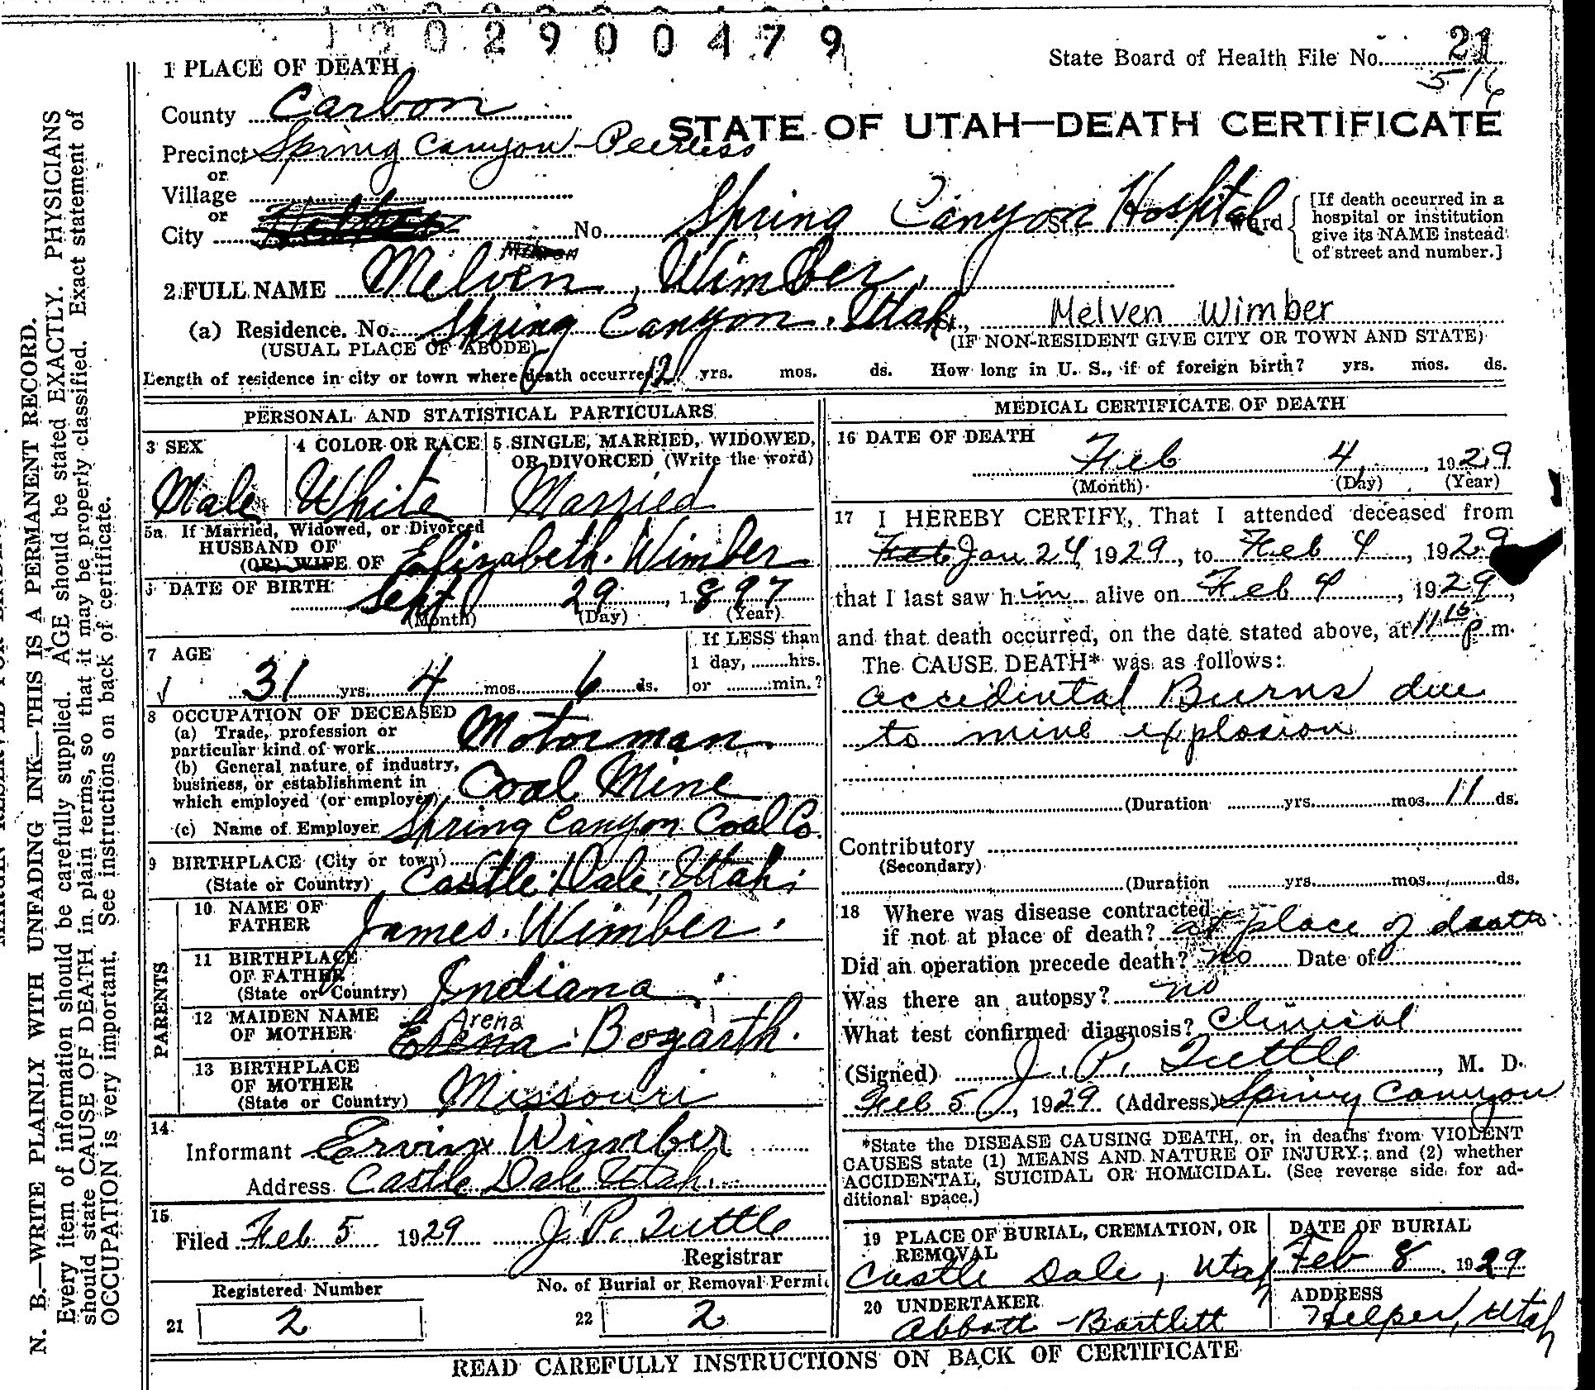 1202900479
State Board of Health File No. 21
516
1 PLACE OF DEATH
County Carbon
STATE OF UTAH—DEATH CERTIFICATE
Precinct Spring Canyon-Peerless
or
Village
or
City No. Spring Canyon Hospital St. Ward
[If death occurred in a
hospital or institution
give its NAME instead
of street and number.]
2 FULL NAME Melven Wimber
(a) Residence. No. Spring Canyon, Utah St., Melven Wimber
(USUAL PLACE OF ABODE) (IF NON-RESIDENT GIVE CITY OR TOWN AND STATE)
Length of residence in city or town where death occurred 12 yrs. mos. ds. How long in U. S., if of foreign birth? yrs. mos. ds.
PERSONAL AND STATISTICAL PARTICULARS
3 SEX
Male
4 COLOR OR RACE
White
5 SINGLE, MARRIED, WIDOWED,
OR DIVORCED (Write the word)
Married
5a If Married, Widowed, or Divorced
HUSBAND OF
(OR) WIFE OF Elizabeth Wimber
DATE OF BIRTH
Sept 29, 1897
(Month) (Day) (Year)
7 AGE
31 yrs. 4 mos. 6 ds.
If LESS than
1 day, ........hrs.
or ........min.?
8 OCCUPATION OF DECEASED
(a) Trade, profession or
particular kind of work Motorman
(b) General nature of industry,
business, or establishment in
which employed (or employer) Coal Mine
(c) Name of Employer Spring Canyon Coal Co.
9 BIRTHPLACE (City or town)
(State or Country) Castle Dale, Utah
PARENTS
10 NAME OF
FATHER James Wimber
11 BIRTHPLACE
OF FATHER
(State or Country) Indiana
12 MAIDEN NAME
OF MOTHER Arena Bogarth
13 BIRTHPLACE
OF MOTHER
(State or Country) Missouri
14
Informant Ervin Wimber
Address Castle Dale Utah
15
Filed Feb 5 1929 J. P. Tuttle
Registrar
Registered Number
21 2
No. of Burial or Removal Permi
22 2
MEDICAL CERTIFICATE OF DEATH
16 DATE OF DEATH
Feb 4, 1929
(Month) (Day) (Year)
17 I HEREBY CERTIFY, That I attended deceased from
Jan 24 1929, to Feb 4, 1929
that I last saw him alive on Feb 4, 1929,
and that death occurred, on the date stated above, at 11 15 p.m.
The CAUSE DEATH* was as follows:
accidintal Burns due
to mine explosion
(Duration ........yrs........mos 11 ds.
Contributory
(Secondary)
(Duration ........yrs........mos........ds.
18 Where was disease contracted
if not at place of death? at place of death
Did an operation precede death? no Date of
Was there an autopsy? no
What test confirmed diagnosis? Clinical
(Signed) J. P. Tuttle, M. D.
Feb 5, 1929 (Address) Spring Canyon
*State the DISEASE CAUSING DEATH, or, in deaths from VIOLENT
CAUSES state (1) MEANS AND NATURE OF INJURY; and (2) whether
ACCIDENTAL, SUICIDAL OR HOMICIDAL. (See reverse side for ad-
ditional space.)
19 PLACE OF BURIAL, CREMATION, OR
REMOVAL
Castle Dale, Utah
DATE OF BURIAL
Feb 8 1929
20 UNDERTAKER
Abbott - Bartlett
ADDRESS
Helper, Utah
READ CAREFULLY INSTRUCTIONS ON BACK OF CERTIFICATE
N. B.—WRITE PLAINLY WITH UNFADING INK—THIS IS A PERMANENT RECORD.
Every item of information should be carefully supplied. AGE should be stated EXACTLY. PHYSICIANS
should state CAUSE OF DEATH in plain terms, so that it may be properly classified. Exact statement of
OCCUPATION is very important. See instructions on back of certificate.